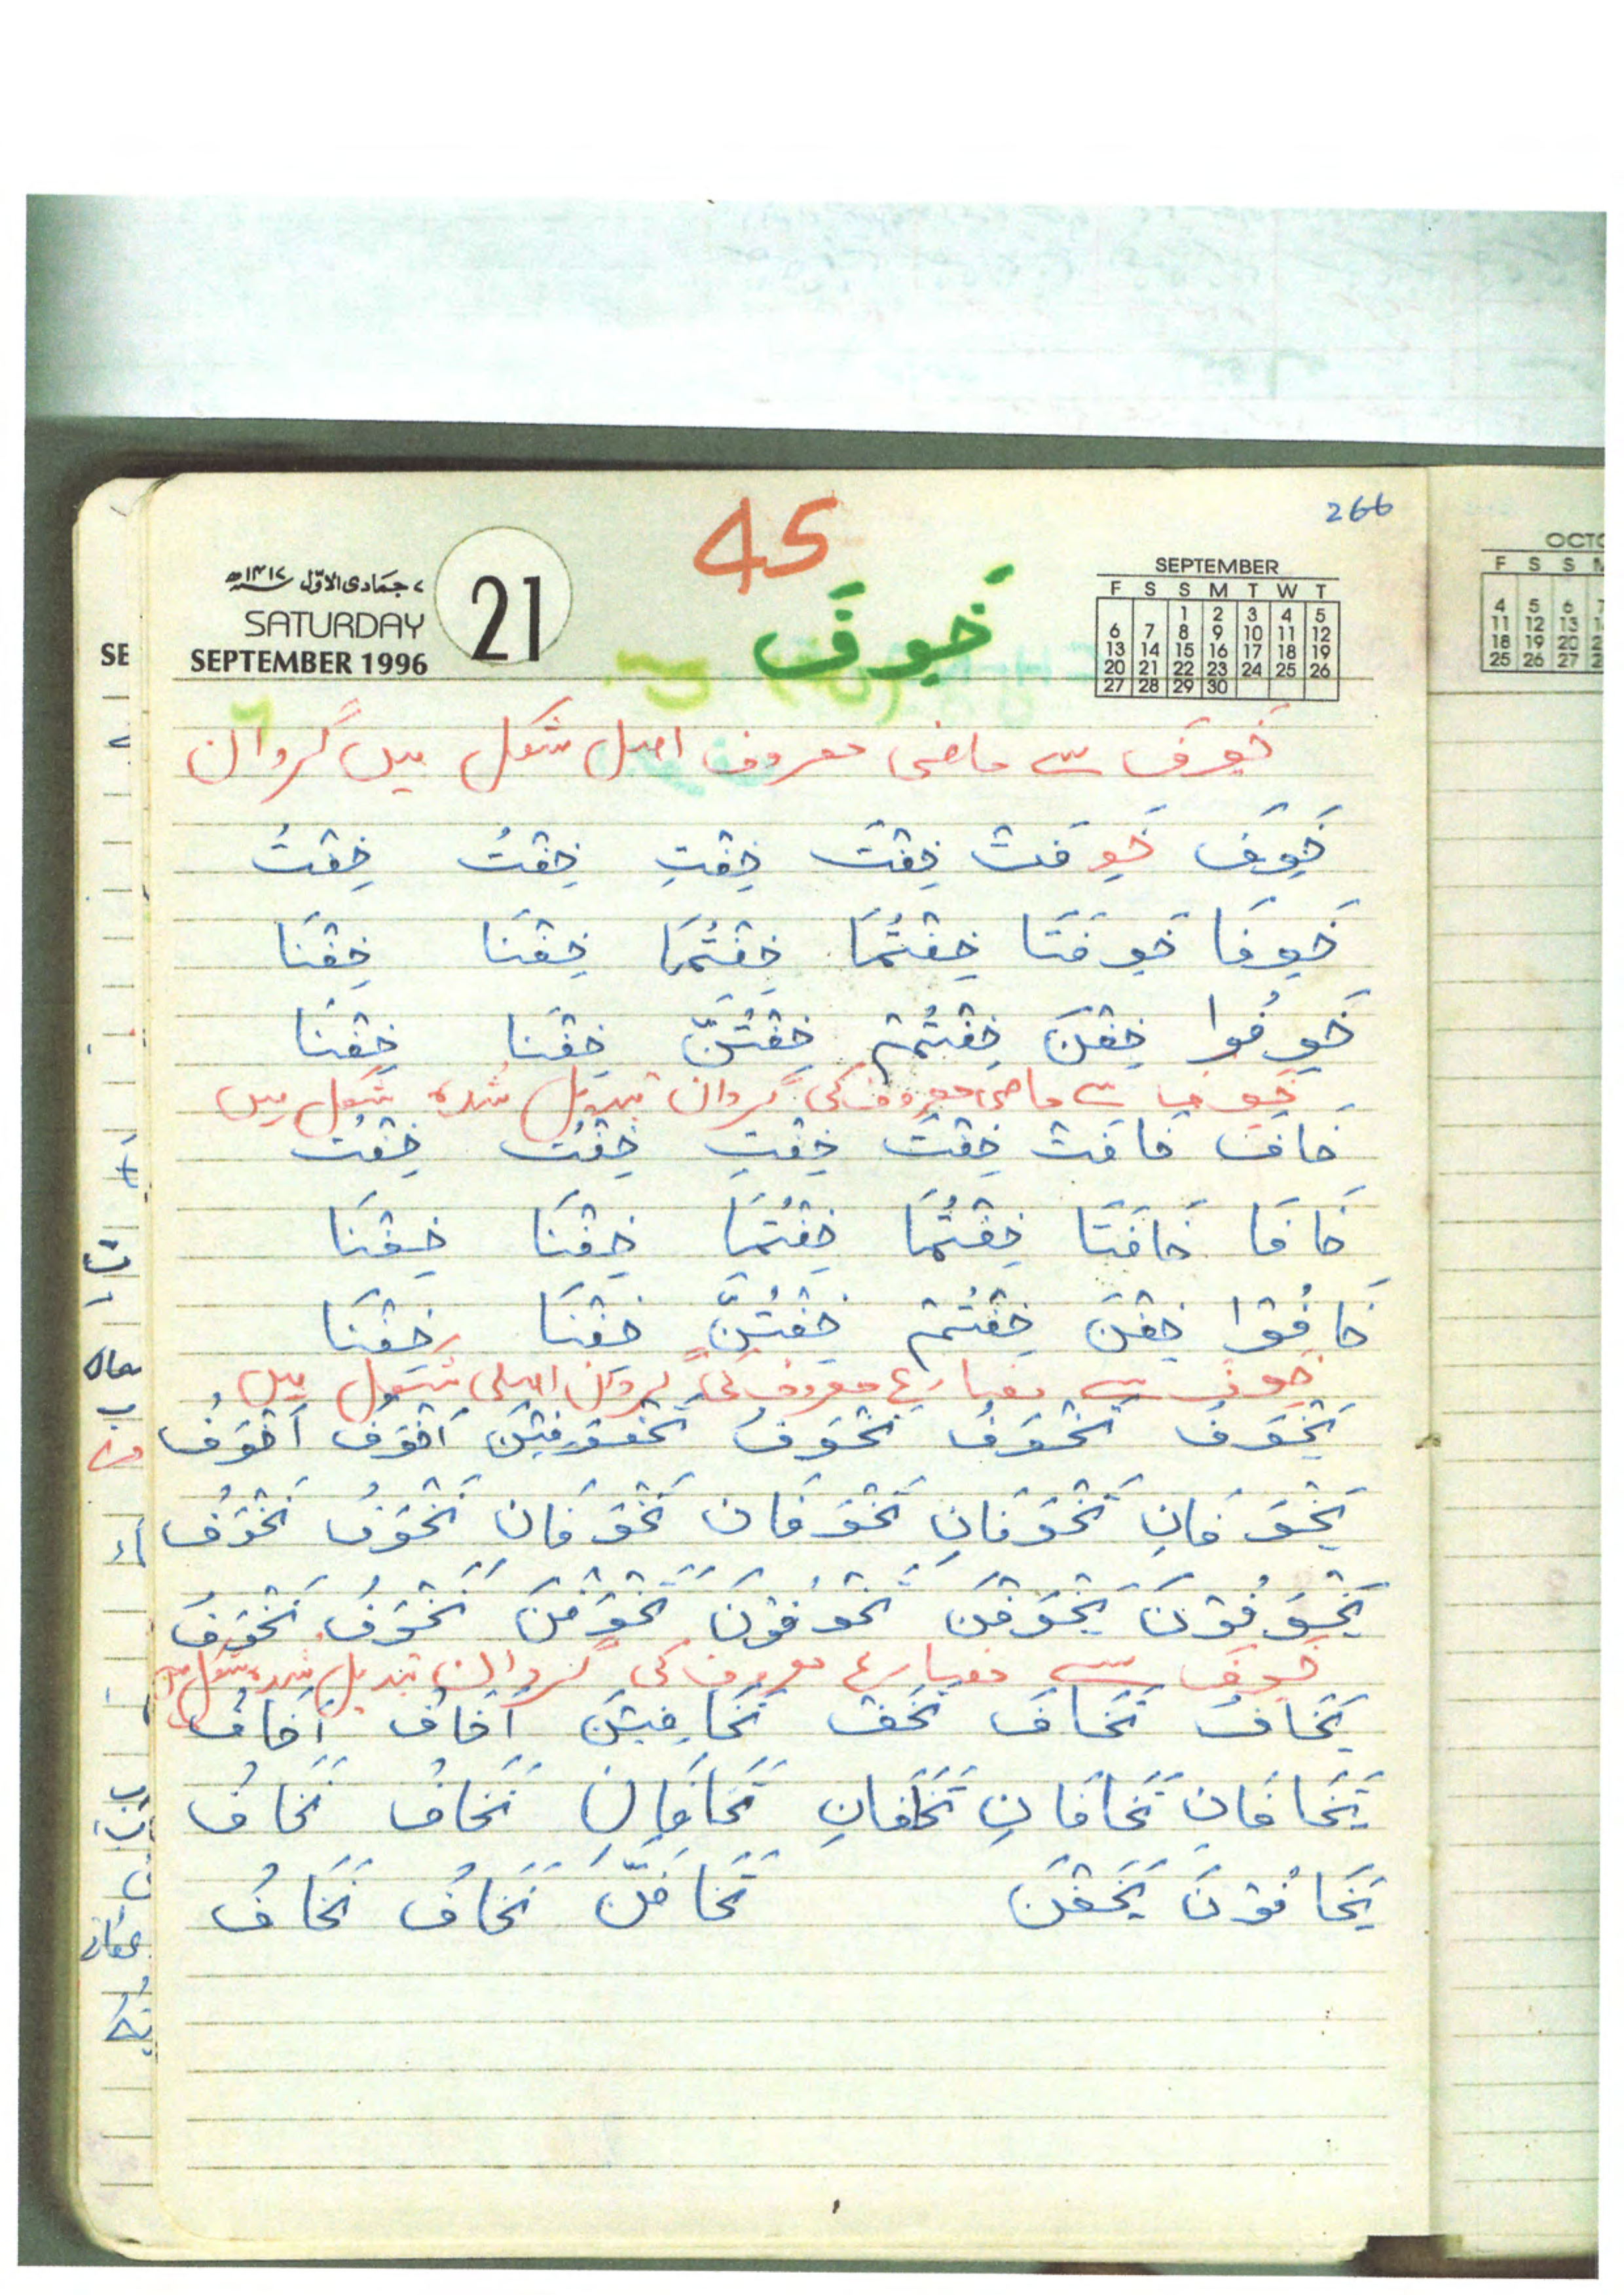 266
45
۷ جمادی الاوّل ۱۴۱۷ھ
SATURDAY
SEPTEMBER 1996
21
SEPTEMBER
F S S M T W T
1 2 3 4 5
6 7 8 9 10 11 12
13 14 15 16 17 18 19
20 21 22 23 24 25 26
27 28 29 30
خَوِفَ
خَوِفَ سے ماضی معروف اصل شکل میں گردان
خَوِفَ خَوِفَتْ خِفْتَ خِفْتِ خِفْتُ خِفْتُ
خَوِفَا خَوِفَتَا خِفْتُمَا خِفْتُمَا خِفْنَا خِفْنَا
خَوِفُوا خِفْنَ خِفْتُمْ خِفْتُنَّ خِفْنَا خِفْنَا
خَوِفَ سے ماضی معروف کی گردان تبدیل شدہ شکل میں
خَافَ خَافَتْ خِفْتَ خِفْتِ خِفْتُ خِفْتُ
خَافَا خَافَتَا خِفْتُمَا خِفْتُمَا خِفْنَا خِفْنَا
خَافُوْا خِفْنَ خِفْتُمْ خِفْتُنَّ خِفْنَا خِفْنَا
خَوِفَ سے مضارع معروف کی گردان اصلی شکل میں
يَخْوَفُ تَخْوَفُ تَخْوَفُ تَخْوَفِيْنَ اَخْوَفُ اَخْوَفُ
يَخْوَفَانِ تَخْوَفَانِ تَخْوَفَانِ تَخْوَفَانِ نَخْوَفُ نَخْوَفُ
يَخْوَفُوْنَ يَخْوَفْنَ تَخْوَفُوْنَ تَخْوَفْنَ نَخْوَفُ نَخْوَفُ
خَوِفَ سے مضارع معروف کی گردان تبدیل شدہ شکل میں
يَخَافُ تَخَافُ تَخَفْ تَخَافِيْنَ اَخَافُ اَخَافُ
يَخَافَانِ تَخَافَانِ تَخَافَانِ تَخَافَانِ نَخَافُ نَخَافُ
يَخَافُوْنَ يَخَفْنَ تَخَافَنَّ نَخَافُ نَخَافُ
SE
OCTO
F S S M
4 5 6 7
11 12 13
18 19 20
25 26 27